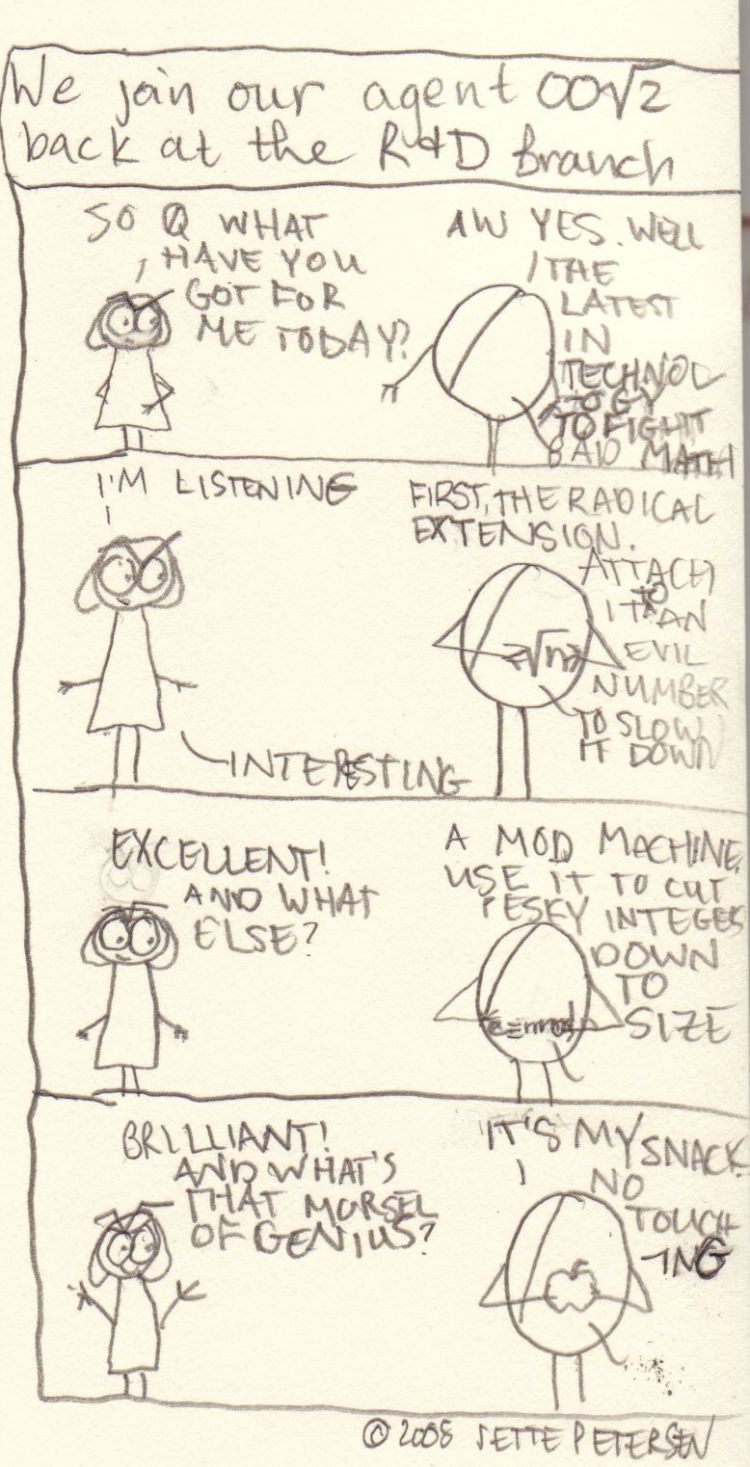 We join our agent 00√2
back at the R&D Branch
SO Q WHAT
HAVE YOU
GOT FOR
ME TODAY?
AW YES. WELL
THE
LATEST
IN
TECHNOL
OGY
TO FIGHT
BAD MATH
I'M LISTENING
FIRST, THE RADICAL
EXTENSION.
ATTACH
TO
IT AN
EVIL
NUMBER
TO SLOW
IT DOWN
√n
INTERESTING
EXCELLENT!
AND WHAT
ELSE?
A MOD MACHINE.
USE IT TO CUT
PESKY INTEGES
DOWN
TO
SIZE
≡mod
BRILLIANT!
AND WHAT'S
THAT MORSEL
OF GENIUS?
IT'S MY SNACK
NO
TOUCH
ING
© 2008 JETTE PETERSEN